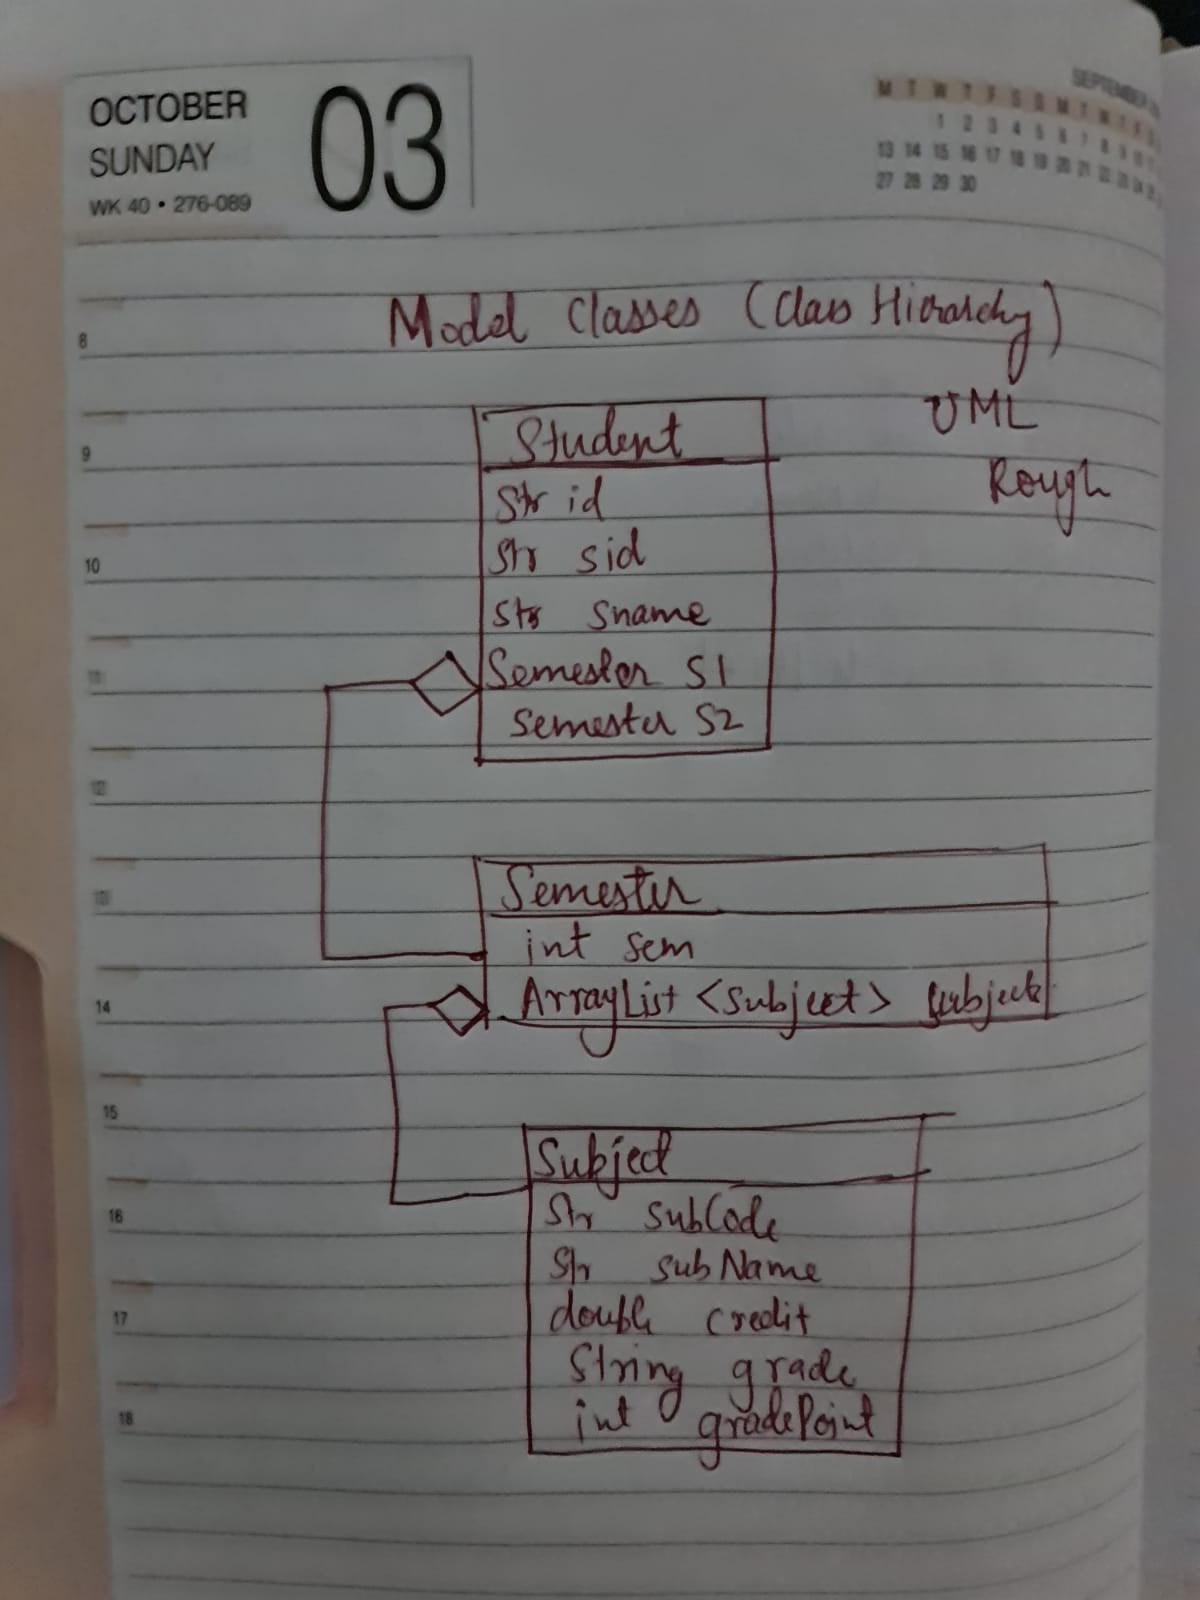 OCTOBER
SUNDAY
WK 40 • 276-089
03
SEPTEMBER
M T W T F S S M T W T F S
1 2 3 4 5 6 7 8 9 10
13 14 15 16 17 18 19 20 21 22 23 24 25
27 28 29 30
Model Classes (Class Hierarchy)
UML
Rough
8
9
10
11
12
13
14
15
16
17
18
Student
Str id
Str sid
Str sname
Semester S1
Semester S2
Semester
int sem
ArrayList <Subject> subjects
Subject
Str subCode
Str subName
double credit
String grade
int gradePoint